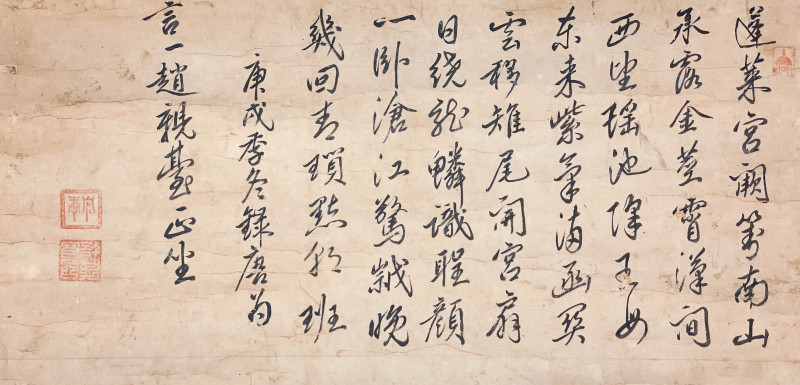 蓬萊宮闕對南山
承露金莖霄漢間
西望瑤池降王母
东来紫氣满函関
雲移雉尾開宮扇
日绕龍鱗識聖顏
一卧滄江驚歲晚
幾回青瑣點朝班
庚戌季冬錄唐为
言一趙親臺正坐